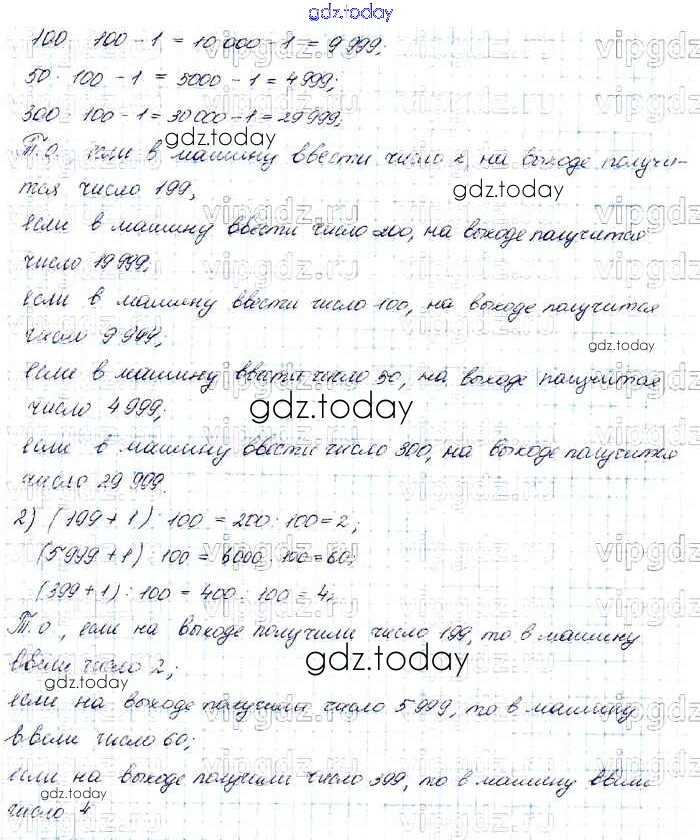 gdz.today
100 · 100 - 1 = 10 000 - 1 = 9 999;
50 · 100 - 1 = 5000 - 1 = 4 999;
300 · 100 - 1 = 30 000 - 1 = 29 999;
gdz.today
Т.о., если в машину ввести число 2, на выходе получи-
тся число 199,
gdz.today
если в машину ввести число 200, на выходе получится
число 19 999;
если в машину ввести число 100, на выходе получится
число 9 999;
gdz.today
если в машину ввести число 50, на выходе получится
число 4 999;
gdz.today
если в машину ввести число 300, на выходе получится
число 29 999.
2) (199 + 1) : 100 = 200 : 100 = 2;
(5 999 + 1) : 100 = 6000 : 100 = 60;
(399 + 1) : 100 = 400 : 100 = 4.
Т.о., если на выходе получили число 199, то в машину
ввели число 2;
gdz.today
gdz.today
если на выходе получили число 5 999, то в машину
ввели число 60;
если на выходе получили число 399, то в машину ввели
gdz.today
число 4
vipgdz.ru